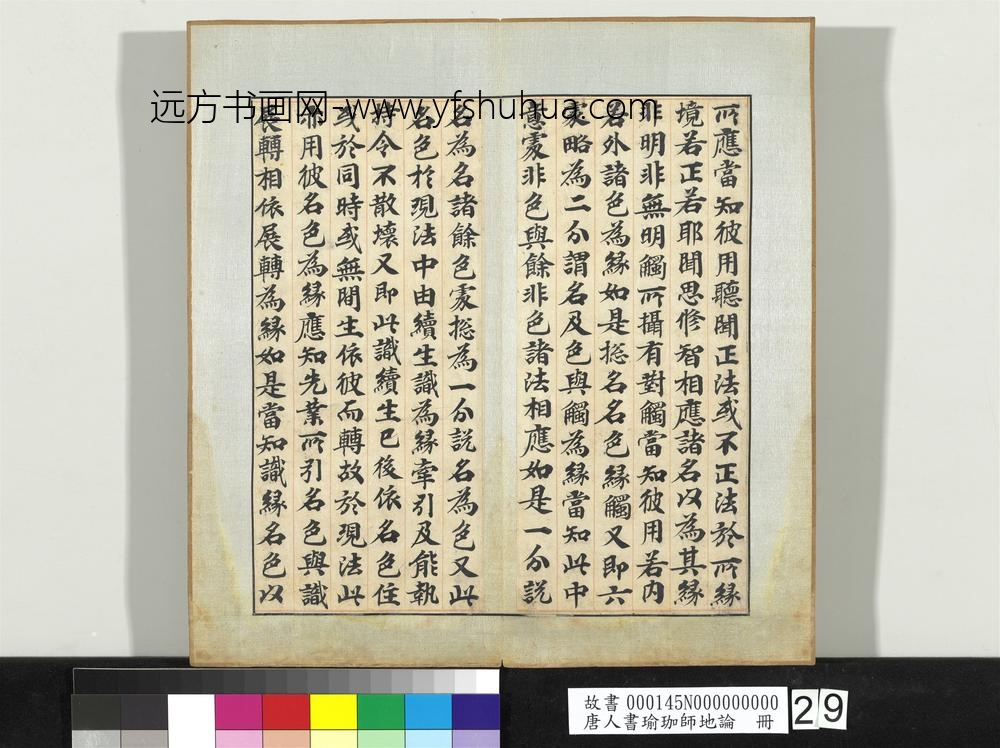 远方书画网-www.yfshuhua.com
所應當知彼用聽聞正法或不正法於所緣
境若正若耶聞思修智相應諸名以為其緣
非明非無明觸所攝有對觸當知彼用若內
若外諸色為緣如是揔名名色緣觸又即六
處略為二分謂名及色與觸為緣當知此中
意處非色與餘非色諸法相應如是一分說
名為名諸餘色處揔為一分說名為色又此
名色於現法中由續生識為緣牽引及能執
持令不散壞又即此識續生已後依名色住
或於同時或無間生依彼而轉故於現法此
識用彼名色為緣應知先業所引名色與識
展轉相依展轉為緣如是當知識緣名色以
故書 000145N000000000
唐人書瑜珈師地論 冊
29